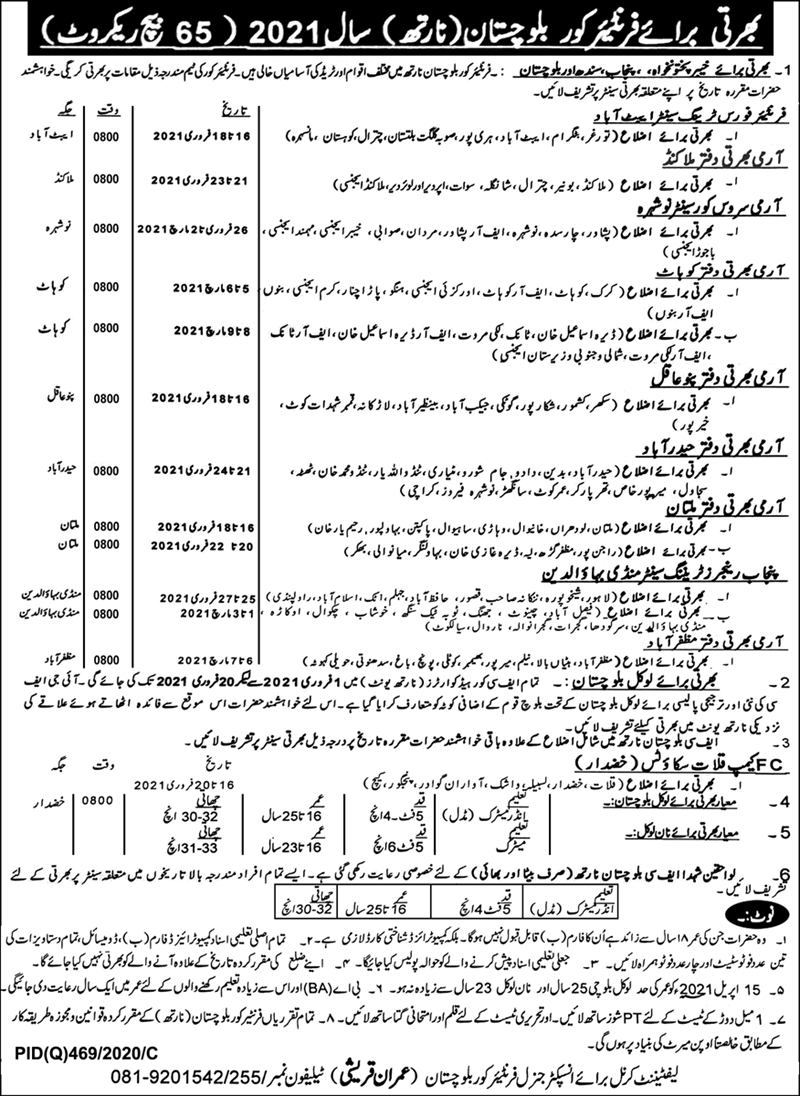 بھرتی برائے فرنٹیئر کور بلوچستان (نارتھ) سال 2021 ( 65 بیچ ریکروٹ)
1- بھرتی برائے خیبر پختونخواہ، پنجاب، سندھ اور بلوچستان : ۔ فرنٹیئر کور بلوچستان نارتھ میں مختلف اقوام اور ٹریڈ کی آسامیاں خالی ہیں۔ فرنٹیئر کور کی ٹیم مندرجہ ذیل مقامات پر بھرتی کریگی۔ خواہشمند
حضرات مقررہ تاریخ پر اپنے متعلقہ بھرتی سینٹر پر تشریف لائیں۔
تاریخ وقت جگہ
فرنٹیئر فورس ٹریننگ سینٹر ایبٹ آباد
ا۔ بھرتی برائے اضلاع (تورغر، بٹگرام، ایبٹ آباد، ہری پور، صوبہ گلگت بلتستان، چترال، کوہستان، مانسہرہ) 16 تا 18 فروری 2021 0800 ایبٹ آباد
آرمی بھرتی دفتر ملاکنڈ
ا۔ بھرتی برائے اضلاع (ملاکنڈ، بونیر، چترال، شانگلہ، سوات، اپر دیر اور لوئر دیر، ملاکنڈ ایجنسی) 21 تا 23 فروری 2021 0800 ملاکنڈ
آرمی سروس کور سینٹر نوشہرہ
ا۔ بھرتی برائے اضلاع (پشاور، چارسدہ، نوشہرہ، ایف آر پشاور، مردان، صوابی، خیبر ایجنسی، مہمند ایجنسی، 26 فروری تا 2 مارچ 2021 0800 نوشہرہ
باجوڑ ایجنسی)
آرمی بھرتی دفتر کوہاٹ
ا۔ بھرتی برائے اضلاع (کرک، کوہاٹ، ایف آر کوہاٹ، اورکزئی ایجنسی، ہنگو، پاڑا چنار، کرم ایجنسی، بنوں 5 تا 6 مارچ 2021 0800 کوہاٹ
ایف آر بنوں)
ب۔ بھرتی برائے اضلاع (ڈیرہ اسماعیل خان، ٹانک، لکی مروت، ایف آر ڈیرہ اسماعیل خان، ایف آر ٹانک 8 تا 9 مارچ 2021 0800 کوہاٹ
، ایف آر لکی مروت، شمالی و جنوبی وزیرستان ایجنسی)
آرمی بھرتی دفتر پنو عاقل
ا۔ بھرتی برائے اضلاع (سکھر، کشمور، شکارپور، گھوٹکی، جیکب آباد، بینظیر آباد، لاڑکانہ، قمبر شہداد کوٹ، 16 تا 18 فروری 2021 0800 پنو عاقل
خیرپور)
آرمی بھرتی دفتر حیدر آباد
ا۔ بھرتی برائے اضلاع (حیدر آباد، بدین، دادو، جام شورو، مٹیاری، ٹنڈو اللہ یار، ٹنڈو محمد خان، ٹھٹھہ، 21 تا 24 فروری 2021 0800 حیدر آباد
سجاول، میرپور خاص، تھرپارکر، عمرکوٹ، سانگھڑ، نوشہرہ فیروز، کراچی)
آرمی بھرتی دفتر ملتان
ا۔ بھرتی برائے اضلاع (ملتان، لودھراں، خانیوال، وہاڑی، ساہیوال، پاکپتن، بہاولپور، رحیم یار خان) 16 تا 18 فروری 2021 0800 ملتان
ب۔ بھرتی برائے اضلاع (راجن پور، مظفر گڑھ، لیہ، ڈیرہ غازی خان، بہاولنگر، میانوالی، بھکر) 20 تا 22 فروری 2021 0800 ملتان
پنجاب رینجرز ٹریننگ سینٹر منڈی بہاؤالدین
ا۔ بھرتی برائے اضلاع (لاہور، شیخوپورہ، ننکانہ صاحب، قصور، حافظ آباد، جہلم، اٹک، اسلام آباد، راولپنڈی) 25 تا 27 فروری 2021 0800 منڈی بہاؤالدین
ب۔ بھرتی برائے اضلاع (فیصل آباد، چنیوٹ، جھنگ، ٹوبہ ٹیک سنگھ، خوشاب، چکوال، اوکاڑہ، 1 تا 3 مارچ 2021 0800 منڈی بہاؤالدین
منڈی بہاؤالدین، سرگودھا، گجرات، گجرانوالہ، نارووال، سیالکوٹ)
آرمی بھرتی دفتر مظفر آباد
ا۔ بھرتی برائے اضلاع (مظفر آباد، ہٹیاں بالا، نیلم، میرپور، بھمبر، کوٹلی، پونچ، باغ، سدھنوتی، حویلی کہوٹہ) 6 تا 7 مارچ 2021 0800 مظفر آباد
2- بھرتی برائے لوکل بلوچستان :۔ تمام ایف سی کور ہیڈ کوارٹرز (نارتھ یونٹ) میں 1 فروری 2021 سے لیکر 20 فروری 2021 تک کی جائے گی۔ آئی جی ایف
سی کی نئی اور ترجیحی پالیسی برائے لوکل بلوچستان کے تحت بلوچ قوم کے اضافی کوٹہ کو متعارف کرایا گیا ہے۔ اس لئے خواہشمند حضرات اس موقع سے فائدہ اٹھاتے ہوئے علاقے کی
نزدیکی نارتھ یونٹ میں بھرتی کیلئے تشریف لائیں۔
3- ایف سی بلوچستان نارتھ میں شامل اضلاع کے علاوہ باقی خواہشمند حضرات مقررہ تاریخ پر درجہ ذیل بھرتی سینٹر پر تشریف لائیں۔
FC کیمپ قلات سکاؤٹس (خضدار) تاریخ وقت جگہ
ا۔ بھرتی برائے اضلاع (قلات، خضدار، لسبیلہ، واشک، آواران گوادر، پنجگور، کیچ) 16 تا 20 فروری 2021 0800 خضدار
4- معیار بھرتی برائے لوکل بلوچستان:۔ تعلیم انڈر میٹرک (مڈل) قد 5 فٹ۔4 انچ عمر 16 تا 25 سال چھاتی 30-32 انچ
5- معیار بھرتی برائے نان لوکل:۔ تعلیم میٹرک قد 5 فٹ 6 انچ عمر 16 تا 23 سال چھاتی 31-33 انچ
6- لواحقین شہدا ایف سی بلوچستان نارتھ (صرف بیٹا اور بھائی) کے لئے خصوصی رعایت رکھی گئی ہے۔ ایسے تمام افراد مندرجہ بالا تاریخوں میں متعلقہ سینٹر پر بھرتی کے لئے
تشریف لائیں۔ تعلیم انڈر میٹرک (مڈل) قد 5 فٹ 4 انچ عمر 16 تا 25 سال چھاتی 30-32 انچ
نوٹ:۔
۱۔ وہ حضرات جن کی عمر ۱۸ سال سے زائد ہے اُن کا فارم (ب) قابل قبول نہیں ہوگا۔ بلکہ کمپیوٹرائزڈ شناختی کارڈ لازمی ہے۔ ۲۔ تمام اصلی تعلیمی اسناد کمپیوٹرائیزڈ فارم (ب)، ڈومیسائل، تمام دستاویزات کی
تین عدد فوٹو سٹیٹ اور چار عدد فوٹو ہمراہ لائیں۔ ۳۔ جعلی تعلیمی اسناد پیش کرنے والے کو حوالہ پولیس کیا جائیگا۔ ۴۔ اپنے ضلع کی مقرر کردہ تاریخ کے علاوہ آنے والے کو بھرتی نہیں کیا جائے گا۔
۵۔ 15 اپریل 2021 کو عمر کی حد لوکل بلوچی 25 سال اور نان لوکل 23 سال سے زیادہ نہ ہو۔ ۶۔ بی اے (BA) اور اس سے زیادہ تعلیم رکھنے والوں کے لئے عمر میں ایک سال رعایت دی جائیگی۔
۷۔ 1 میل دوڑ کے ٹیسٹ کے لئے PT شوز ساتھ لائیں۔ اور تحریری ٹیسٹ کے لئے قلم اور امتحانی گتا ساتھ لائیں۔ ۸۔ تمام تقرریاں فرنٹیر کور بلوچستان (نارتھ) کے مقرر کردہ قوانین و مجوزہ طریقہ کار
کے مطابق خالصتاً اوپن میرٹ کی بنیاد پر ہوں گی۔
PID(Q)469/2020/C
لیفٹیننٹ کرنل برائے انسپکٹر جنرل فرنٹیئر کور بلوچستان (عمران قریشی) ٹیلیفون نمبر 081-9201542/255/